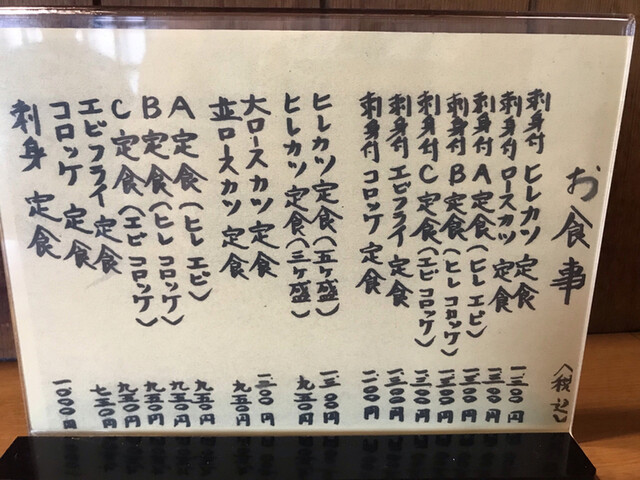 お食事 (税込)
刺身付 ヒレカツ定食 一三〇〇円
刺身付 ロースカツ 定食 一三〇〇円
刺身付 A定食(ヒレ エビ) 一三〇〇円
刺身付 B定食(ヒレ コロッケ) 一三〇〇円
刺身付 C定食(エビ コロッケ) 一三〇〇円
刺身付 エビフライ 定食 一三〇〇円
刺身付 コロッケ 定食 一一〇〇円
ヒレカツ定食(五ヶ盛)
ヒレカツ 定食(三ヶ盛) 九五〇円
大ロースカツ 定食
並ロースカツ 定食 九五〇円
A 定食(ヒレ エビ) 九五〇円
B 定食(ヒレ コロッケ) 九五〇円
C 定食(エビ コロッケ) 九五〇円
エビフライ 定食 九五〇円
コロッケ 定食 七五〇円
刺身 定食 一〇〇〇円